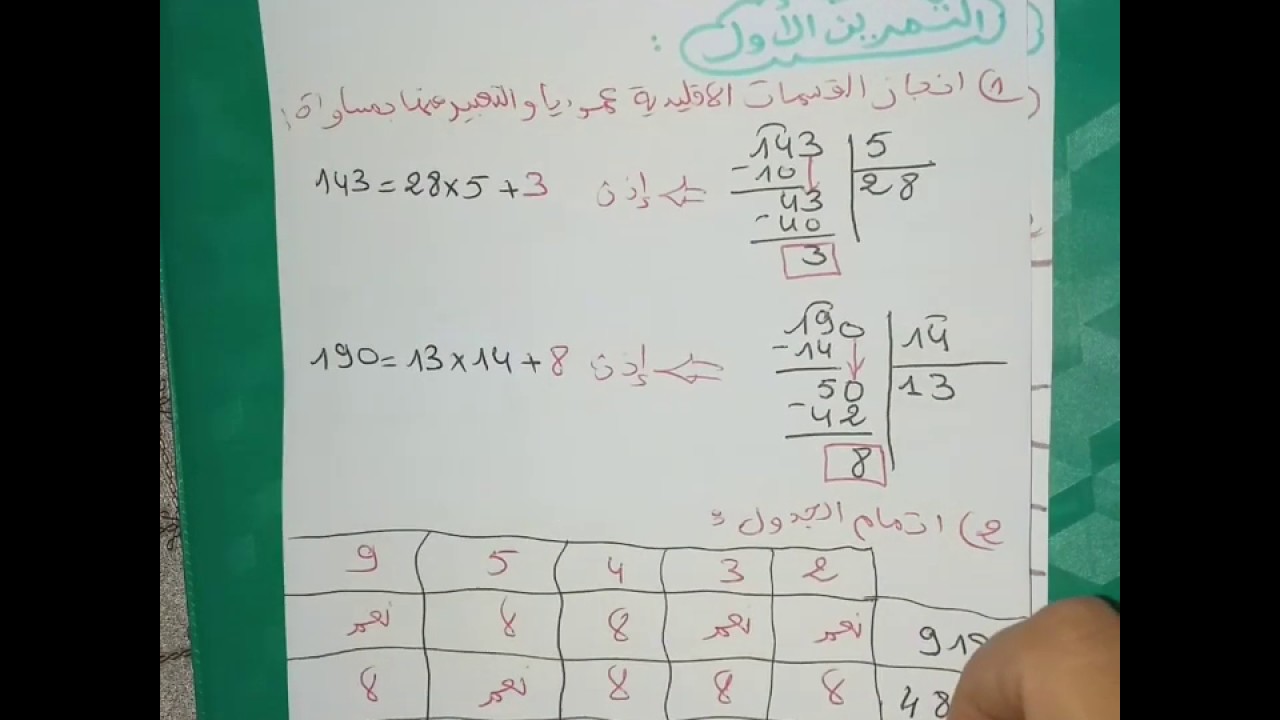 التمرين الأول :
1) انجاز القسمات الاقليدية عموديا والتعبير عنها بمساواة :
143 | 5
-10 | 28
43
-40
3
إذن 143 = 28 × 5 + 3
190 | 14
-14 | 13
50
-42
8
إذن 190 = 13 × 14 + 8
2) اتمام الجدول :
2 3 4 5 9
نعم نعم لا لا نعم
لا لا لا نعم لا